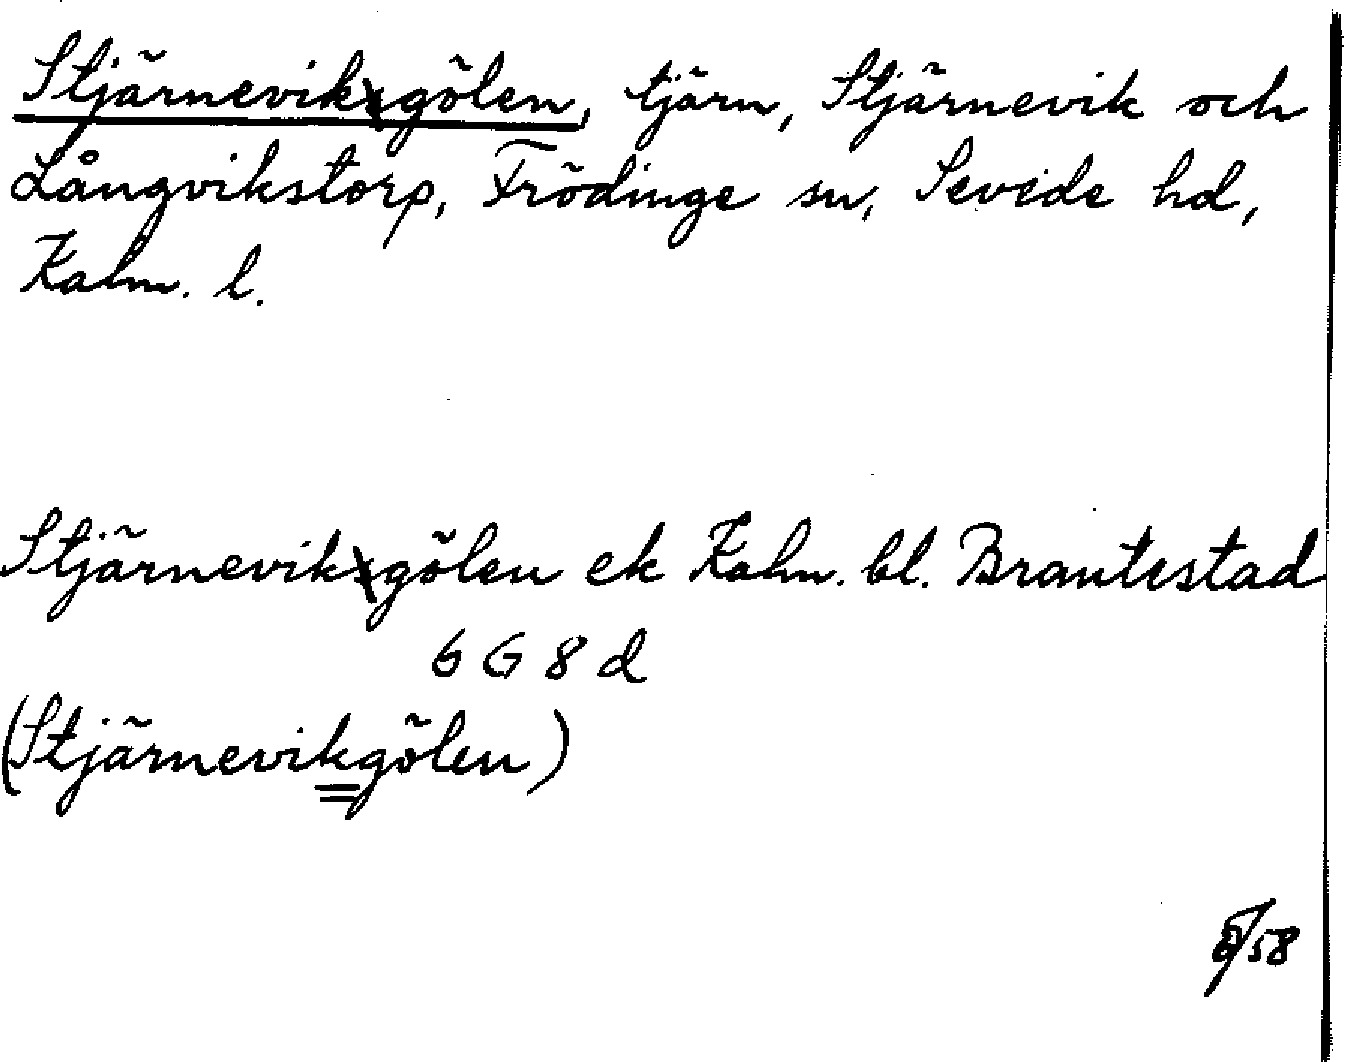 Stjärneviksgölen, tjärn, Stjärnevik och
Långvikstorp, Frödinge sn, Sevede hd,
Kalm. l.
Stjärneviksgölen ek Kalm. bl. Brantestad
6 G 8 d
(Stjärnevikgölen)
58